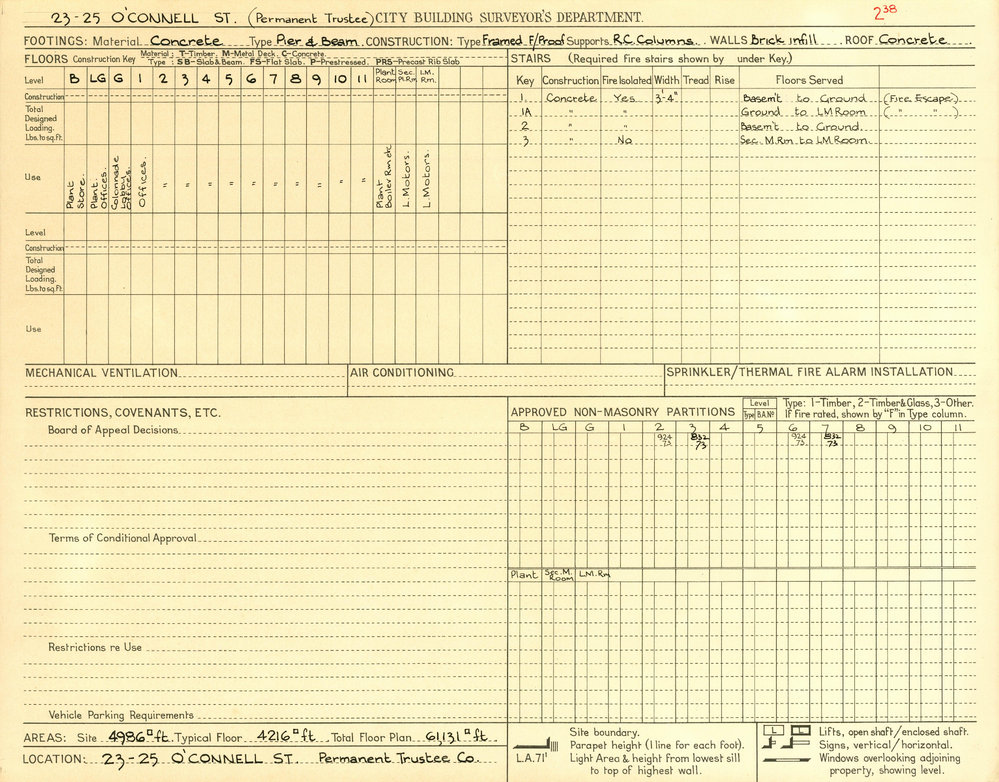 23-25 O'CONNELL ST. (Permanent Trustee) CITY BUILDING SURVEYOR'S DEPARTMENT. 2³⁸
FOOTINGS: Material Concrete Type Pier & Beam CONSTRUCTION: Type Framed F/Proof Supports R.C. Columns. WALLS Brick infill ROOF Concrete
FLOORS Construction Key Material: T-Timber, M-Metal Deck, C-Concrete.
Type: SB-Slab & Beam. FS-Flat Slab. P-Prestressed. PRS-Precast Rib Slab
Level B LG G 1 2 3 4 5 6 7 8 9 10 11 Plant Room Sec. Pl.Rm L.M. Rm.
Construction
Total Designed Loading. Lbs. to sq. ft.
Use Plant Store. Plant. Offices. Colonnade Lobby. Offices. Offices. " " " " " " " " " " Plant Boiler Rm etc L. Motors. L. Motors.
Level
Construction
Total Designed Loading. Lbs. to sq. ft.
Use
STAIRS (Required fire stairs shown by under Key.)
Key Construction Fire Isolated Width Tread Rise Floors Served
1. Concrete Yes 3'-4" Basem't to Ground (Fire Escape)
1A " " Ground to LM Room ( " " )
2 " " Basem't to Ground.
3 " No Sec. M.Rm to LM Room.
MECHANICAL VENTILATION
AIR CONDITIONING
SPRINKLER/THERMAL FIRE ALARM INSTALLATION
RESTRICTIONS, COVENANTS, ETC.
Board of Appeal Decisions
Terms of Conditional Approval
Restrictions re Use
Vehicle Parking Requirements
APPROVED NON-MASONRY PARTITIONS Level Type B.A.Nº Type: 1-Timber, 2-Timber & Glass, 3-Other.
If fire rated, shown by "F" in Type column.
B LG G 1 2 3 4 5 6 7 8 9 10 11
924 832 924 832
73 73 73 73
Plant Sec. M. Room L.M. Rm
AREAS: Site 4986□ft. Typical Floor 4216□ft Total Floor Plan 61,131□ft
LOCATION: 23-25 O'CONNELL ST. Permanent Trustee Co.
Site boundary.
Parapet height (1 line for each foot).
L.A. 71' Light Area & height from lowest sill
to top of highest wall.
L Lifts, open shaft/enclosed shaft.
Signs, vertical/horizontal.
Windows overlooking adjoining
property, showing level.